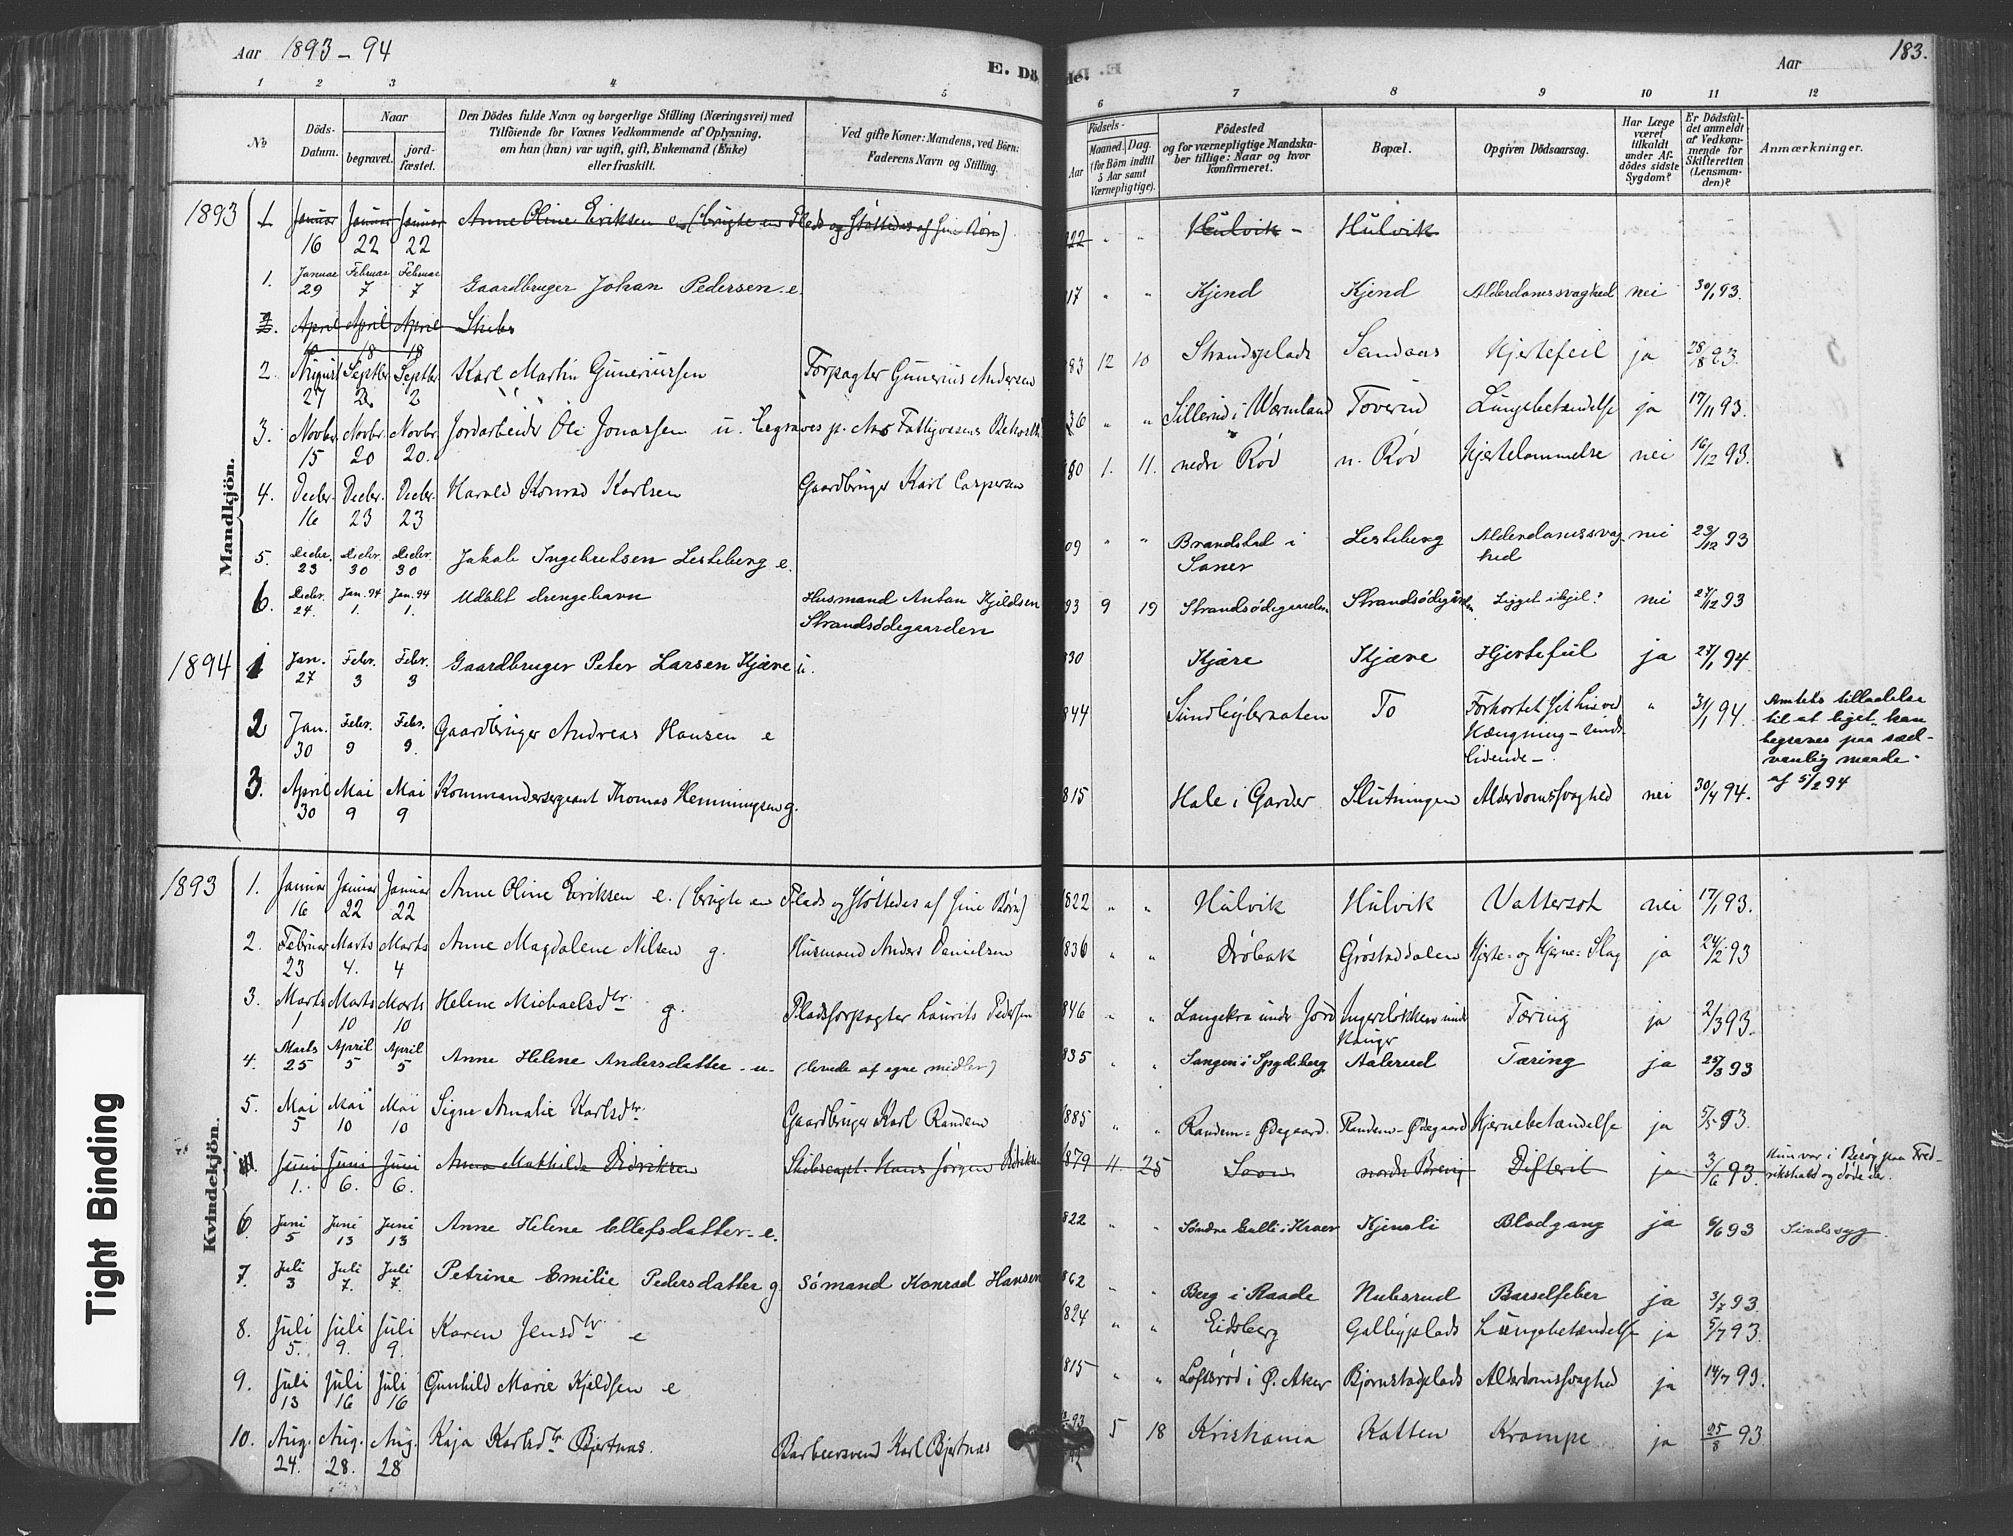 Aar 1893-94
E. Dö
de.
Aar
183.
1 2 3 4 5 6 7 8 9 10 11 12
No
Döds-Datum.
Naar
begravet.
jord-fæstet.
Den Dödes fulde Navn og borgerlige Stilling (Næringsvei) med
Tilföiende for Voxnes Vedkommende af Oplysning,
om han (hun) var ugift, gift, Enkemand (Enke)
eller fraskilt.
Ved gifte Koner: Mandens, ved Børn:
Faderens Navn og Stilling.
Födsels-
Aar
Maaned. Dag.
(for Börn indtil
5 Aar samt
Værnepligtige).
Födested
og for værnepligtige Mandska-
ber tillige: Naar og hvor
konfirmeret.
Bopæl.
Opgiven Dödsaarsag.
Har Læge
været
tilkaldt
under Af-
dödes sidste
Sygdom?
Er Dödsfal-
det anmeldt
af Vedkom-
mende for
Skifteretten
(Lensman-
den)?
Anmærkninger.
Mandkjön.
1893 1 Januar 16 Januar 22 Januar 22 Anne Oline Eriksen e (brugte en Plads og støttedes af sine Børn) 22 " " Hulvik - Hulvik
1. Januar 29 Februar 7 Februar 7 Gaardbruger Johan Pedersen e. 17 " " Kjend Kjend Alderdomssvaghed nei 30/1 93.
2. April 10 April 18 April 18 Skibs
2 August 27 Septbr 2 Septbr 2 Karl Martin Guneriussen Forpagter Gunerius Andersen 93 12 10 Strandsplads Sandaas Hjertefeil ja 28/8 93.
3. Novbr 15 Novbr. 20 Novbr. 20. Jordarbeider Ole Jonassen u. begraves p. Aas Fattigvæsens 36 " " Sillerud i Wærmland Toverud Lungebetændelse ja 17/11 93.
4. Decbr. 16 Decbr. 23 Decbr. 23 Harald Konrad Karlsen Gaardbruger Karl Caspersen 80 1. 11. nedre Röd n. Röd Hjertelammelse nei 16/12 93.
5. Decbr. 23 Decbr. 30 Decbr. 30 Jakob Ingebretsen Lesteberg e. 09 " " Brandstad i Saner Lesteberg Alderdomssvaghed nei 23/12 93
6. Decbr. 24. Jan. 94 1. Jan. 94 1. Udöbt drengebarn Husmand Anton Kjeldsen Strandsödegaarden 93 9 19 Strandsödegaarden Strandsödegården Ligget ihjel? nei 27/12 93
1894 1 Jan. 27 Febr. 3 Febr. 3 Gaardbruger Peter Larsen Kjære u. 30 Kjære Kjære Hjertefeil ja 27/1 94
2 Jan. 30 Febr. 9 Febr. 9. Gaardbruger Andreas Hansen e 844 Sundbybraaten To Forkortet sit liv ved Hængning - sindslidende - " 31/1 94. Amtets tilladelse til at liget kan begraves paa sædvanlig maade af 5/2 94
3. April 30 Mai 9 Mai 9 Kommandersergeant Thomas Hemmingsen g. 815 Hale i Garder Slutningen Alderdomssvaghed nei 30/4 94.
Kvindekjön.
1893 1. Januar 16 Januar 22 Januar 22 Anne Oline Eriksen e. (brugte en Plads og støttedes af sine Børn) 1822 " " Hulvik Hulvik Vattersot nei 17/1 93.
2. Februar 23 Marts 4. Marts 4 Anne Magdalene Nilsen g. Husmand Anders Danielsen 836 " " Dröbak Gröstaddalen Hjerte- og Hjerne-Slag ja 24/2 93
3. Marts 1 Marts 10 Marts 10 Helene Michaelsdtr g. Pladsforpagter Laurits Pedersen 846 " " Langekra under Jord Ingerslökken under Hauger Tæring ja 2/3 93.
4. Marts 25 April 5 April 5 Anne Helene Andersdatter u. (levede af egne midler) 835 " " Sangen i Spydeberg Aalerud Tæring ja 25/3 93
5. Mai 5 Mai 10 Mai 10 Signe Amalie Karlsdtr. Gaardbruger Karl Randem 885 " " Randem-Ödegaard. Randem-Ödegaard Hjernebetændelse ja 5/5 93.
Juni 1. Juni 6. Juni 6. Anna Mathilde Didriksen Skibscapt. Hans Jørgen Didriksen 1879 11. 25 Soon nordre Brevig Difterit ja 3/6 93. Hun var i Besøg paa Fredrikshald og døde der.
6 Juni 5 Juni 13 Juni 13 Anne Helene Ellefsdatter e. 822 " " Søndre Gulli i Kraer Kjensli Blodgang ja 6/6 93 Sindssyg.
7. Juli 3 Juli 7. Juli 7. Petrine Emilie Pedersdatter g. Sömand Konrad Hansen 862 " " Berg i Raade Nubsrud Barselfeber ja 3/7 93.
8. Juli 5. Juli 9. Juli 9. Karen Jensdtr e 1824 " " Eidsberg Galbyplads Lungebetændelse ja 5/7 93.
9. Juli 13 Juli 16 Juli 16 Gunhild Marie Kjeldsen e 815 " " Loftsröd i Ø. Aker Bjørnstadplads Alderdomssvaghed ja 14/7 93.
10. Aug. 24. Aug. 28. Aug. 28 Kaja Karlsdtr Bjertnæs. Barbeersvend Karl Bjertnæs 93 5 18 Kristiania Katten Krampe ja 25/8 93
Tight Binding